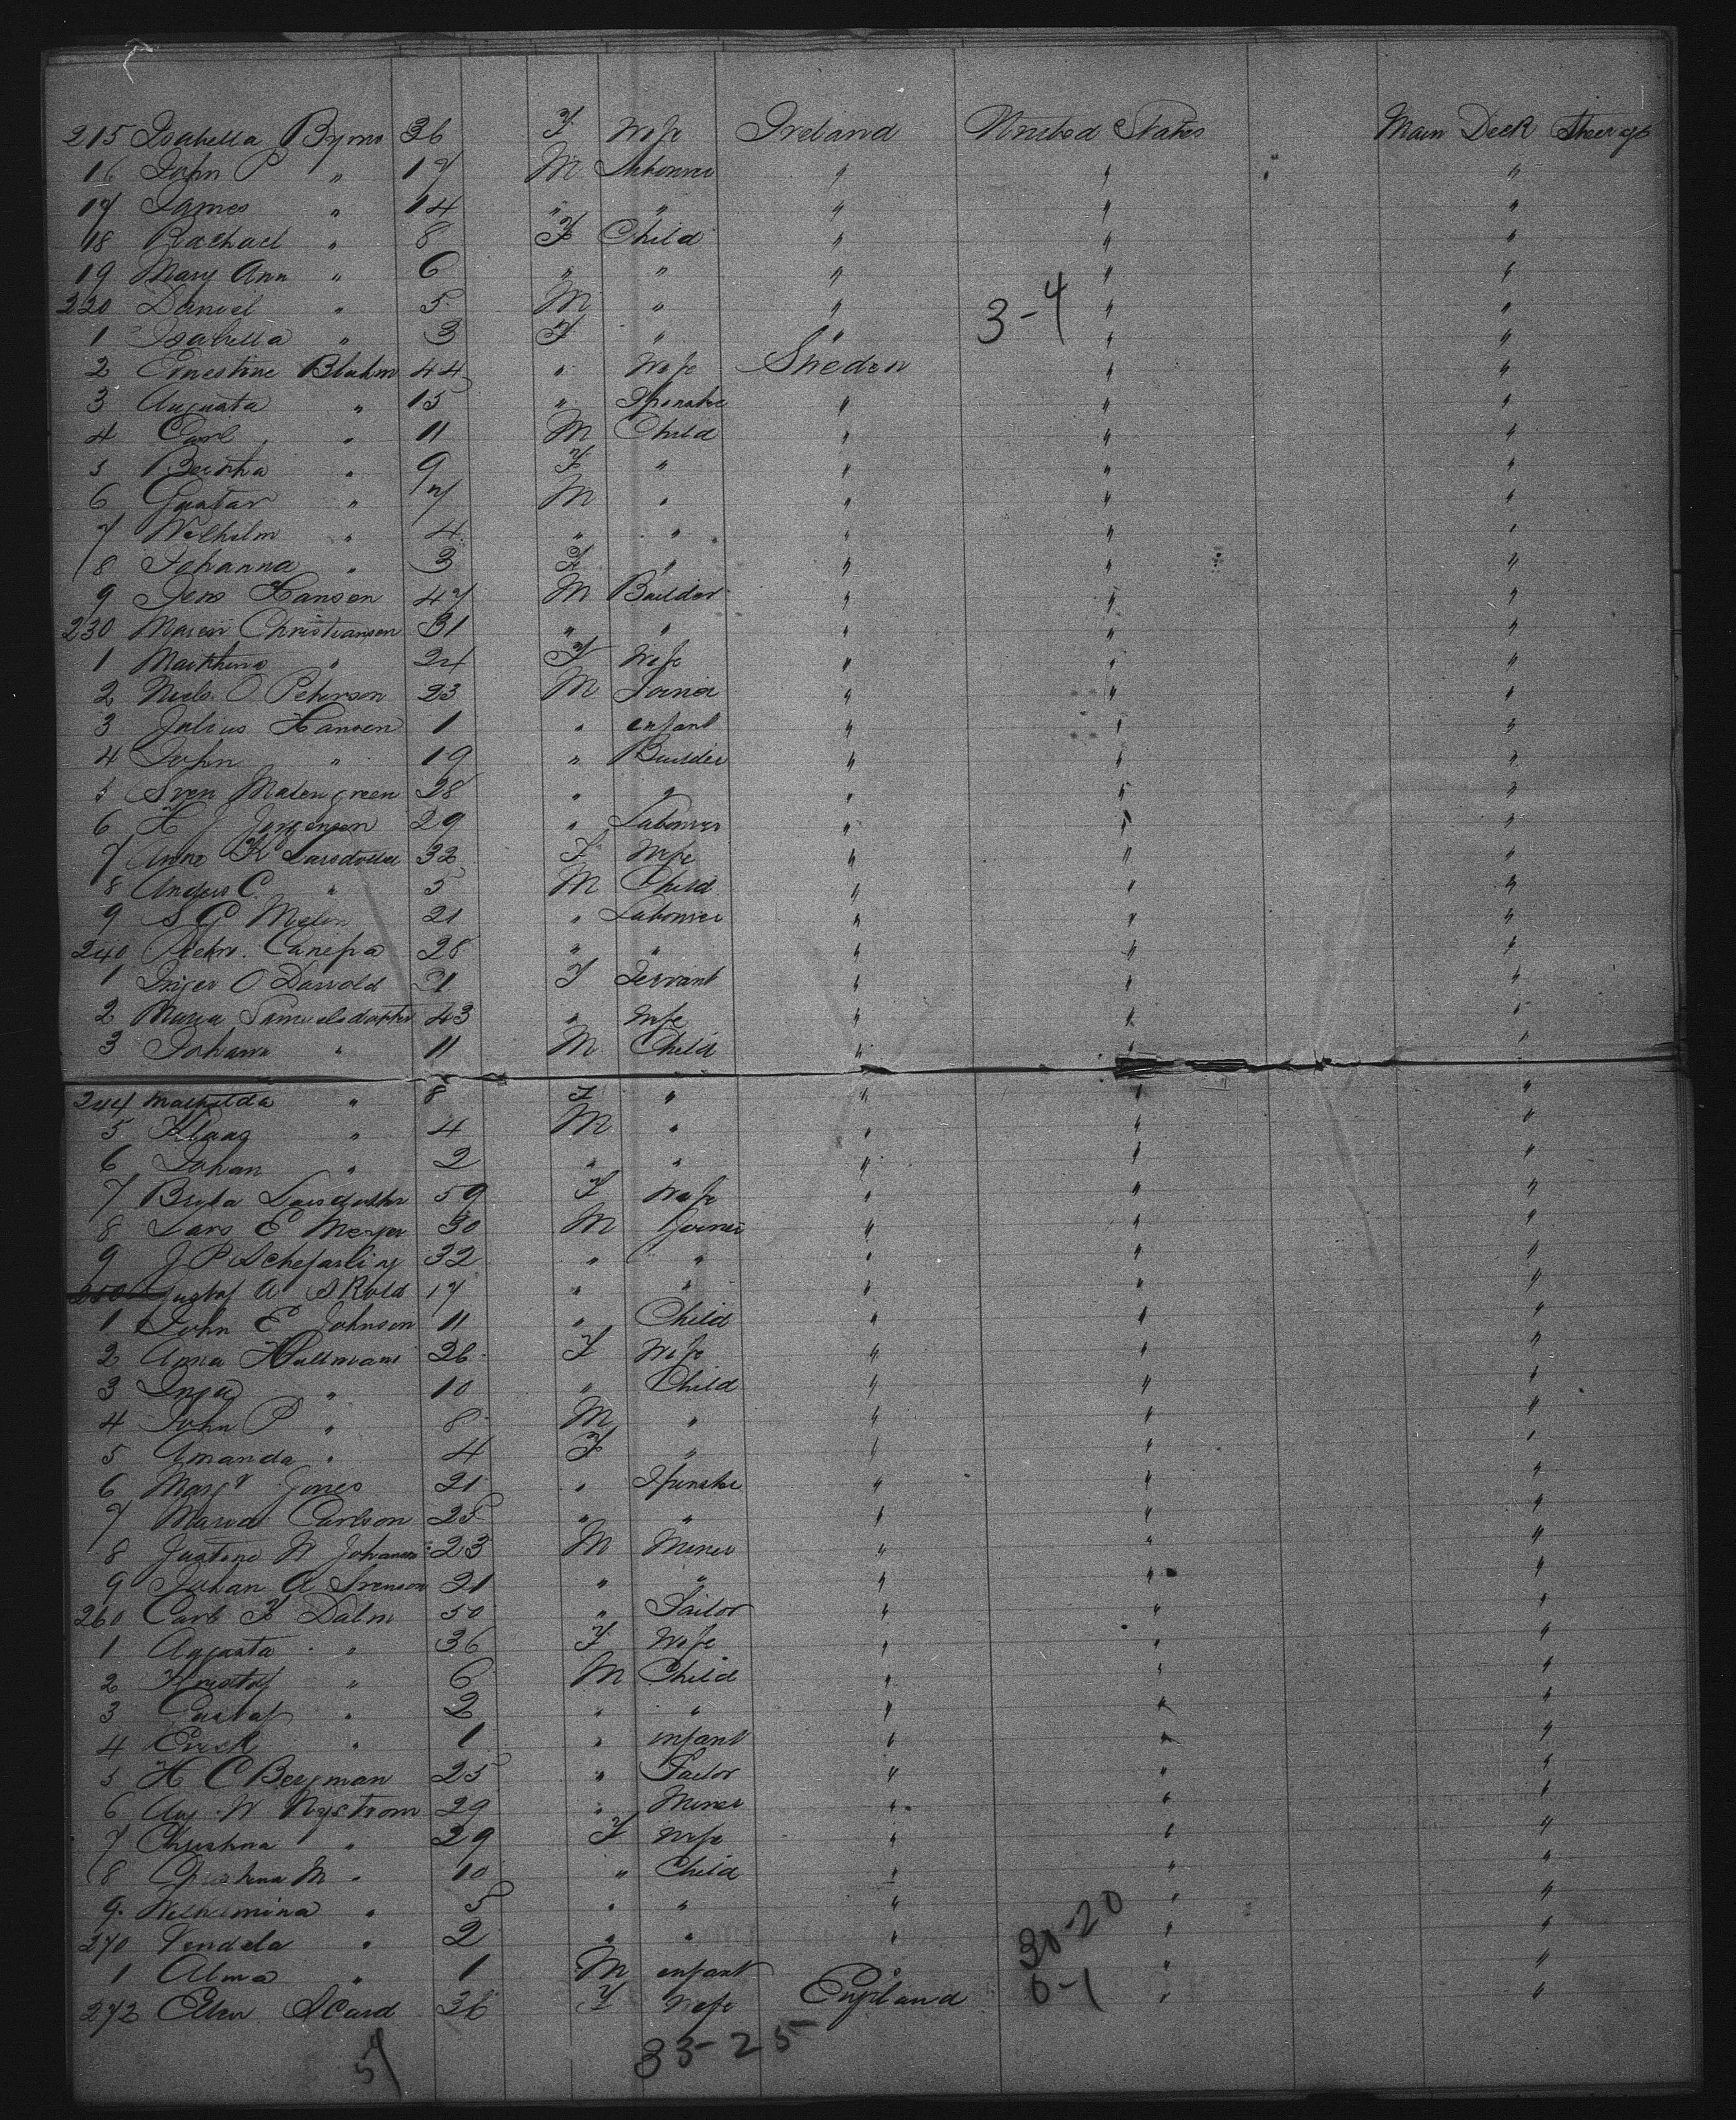 215 Isabella Byrns 36 F Wife Ireland United States Main Deck Steerage
16 John P " 17 M Labourer " " "
17 James " 14 " " " " "
18 Rachael " 8 F Child " " "
19 Mary Ann " 6 " " " " "
220 Daniel " 5 M " " " "
1 Isabella " 3 F " " 3-4 " "
2 Ernestine Bluhm 44 " Wife Sweden " "
3 Augusta " 15 " Spinster " " "
4 Carl " 11 M Child " " "
5 Bertha " 9 F " " " "
6 Gustav " 7 M " " " "
7 Wilhelm " 4 " " " " "
8 Johanna " 3 F " " " "
9 Jens Hansen 47 M Builder " " "
230 Maren Christiansen 31 " " " " "
1 " 24 F Wife " " "
2 Niels O Peterson 23 M Joiner " " "
3 Julius Hansen 1 " infant " " "
4 John " 19 " Builder " " "
5 Sven Malengreen 28 " " " " "
6 H J Jorgensen 29 " Labourer " " "
7 Anne K Larsdotter 32 F Wife " " "
8 Anders C. " 5 M Child " " "
9 S G Melin 21 " Labourer " " "
240 Pietro Canepa 28 " " " " "
1 Inger O Darvold 31 F Servant " " "
2 Maria Samuelsdotter 43 " Wife " " "
3 Johann " 11 M Child " " "
244 Mathilda " 8 F " " " "
5 Klaas " 4 M " " " "
6 Johan " 2 " " " " "
7 Bryta Larsdotter 59 F Wife " " "
8 Lars E Meyer 30 M Joiner " " "
9 J P Scheparling 32 " " " " "
250 Gustaf A Skold 17 " " " " "
1 John E Johnson 11 " Child " " "
2 Anna Hallman 26 F Wife " " "
3 Inga " 10 " Child " " "
4 John P " 8 M " " " "
5 Amanda " 4 F " " " "
6 Margt Jones 21 " Spinster " " "
7 Maria Carlson 25 " " " " "
8 Justine W Johanson 23 M Miner " " "
9 Johan A Svenson 21 " " " " "
260 Carl F Dalm 50 " Tailor " " "
1 Augusta " 36 F Wife " " "
2 " 6 M Child " " "
3 Gustaf " 2 " " " " "
4 Erick " 1 " infant " " "
5 H C Bergman 25 " Tailor " " "
6 Aug W Nystrom 29 " Miner " " "
7 Christina " 29 F Wife " " "
8 Christina M " 10 " Child " " "
9 Wilhelmina " 5 " " " " "
270 Vendela " 2 " " " 30-20 " "
1 Alma " 1 M infant " " "
272 Ellen Scard 36 F Wife England 0-1 " "
57 33-25